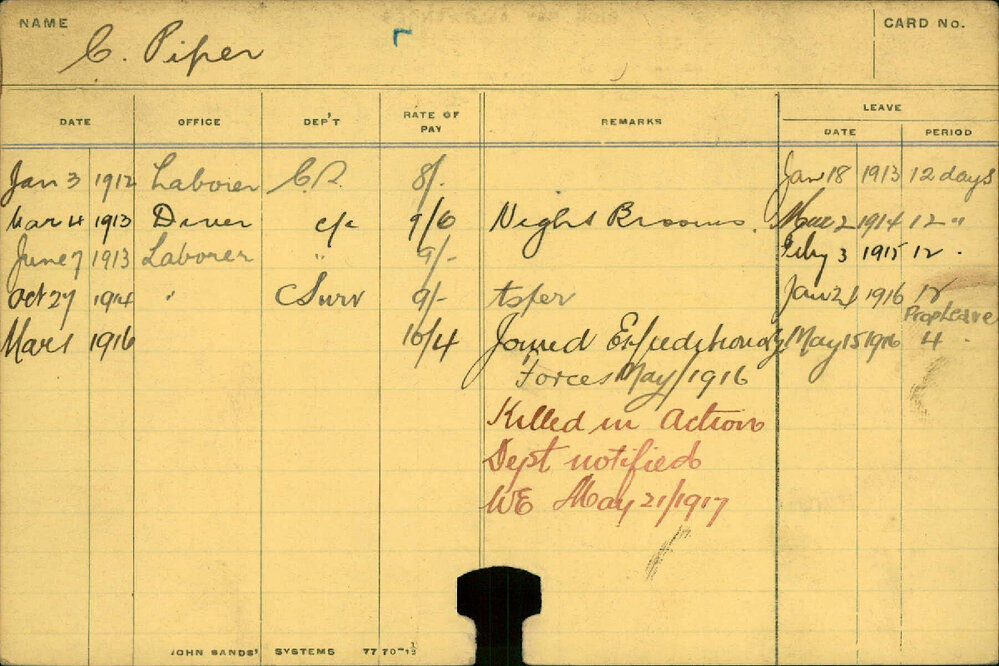 NAME C. Piper CARD No.
LEAVE
DATE OFFICE DEP'T RATE OF PAY REMARKS DATE PERIOD
Jan 3 1912 Laborer C.R. 8/- Jan 18 1913 12 days
Mar 4 1913 Driver c/c 9/6 Night Brooms. Mar 2 1914 12 "
June 7 1913 Laborer " 9/- Feby 3 1915 12 "
Oct 27 1914 " C Surv 9/- tsfer Jan 21 1916 12
Prop Leave
Mar 1 1916 10/4 Joined Expeditionary May 15 1916 4 "
Forces May/1916
Killed in Action
Dept notified
WE May 21/1917
JOHN SANDS' SYSTEMS